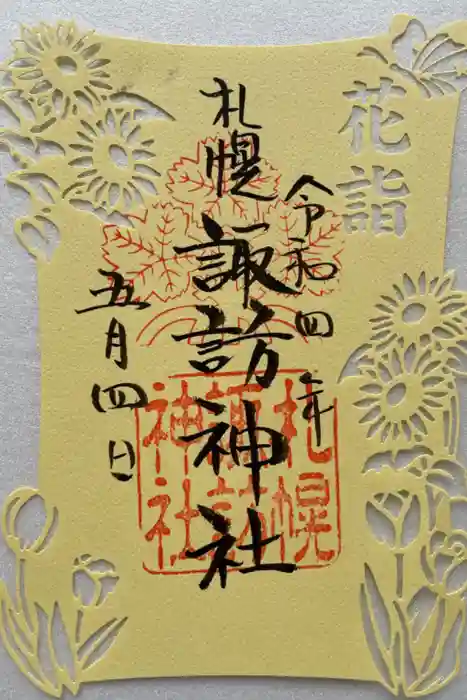 花詣
令和四年
札幌諏訪神社
五月四日
札幌
諏訪
神社